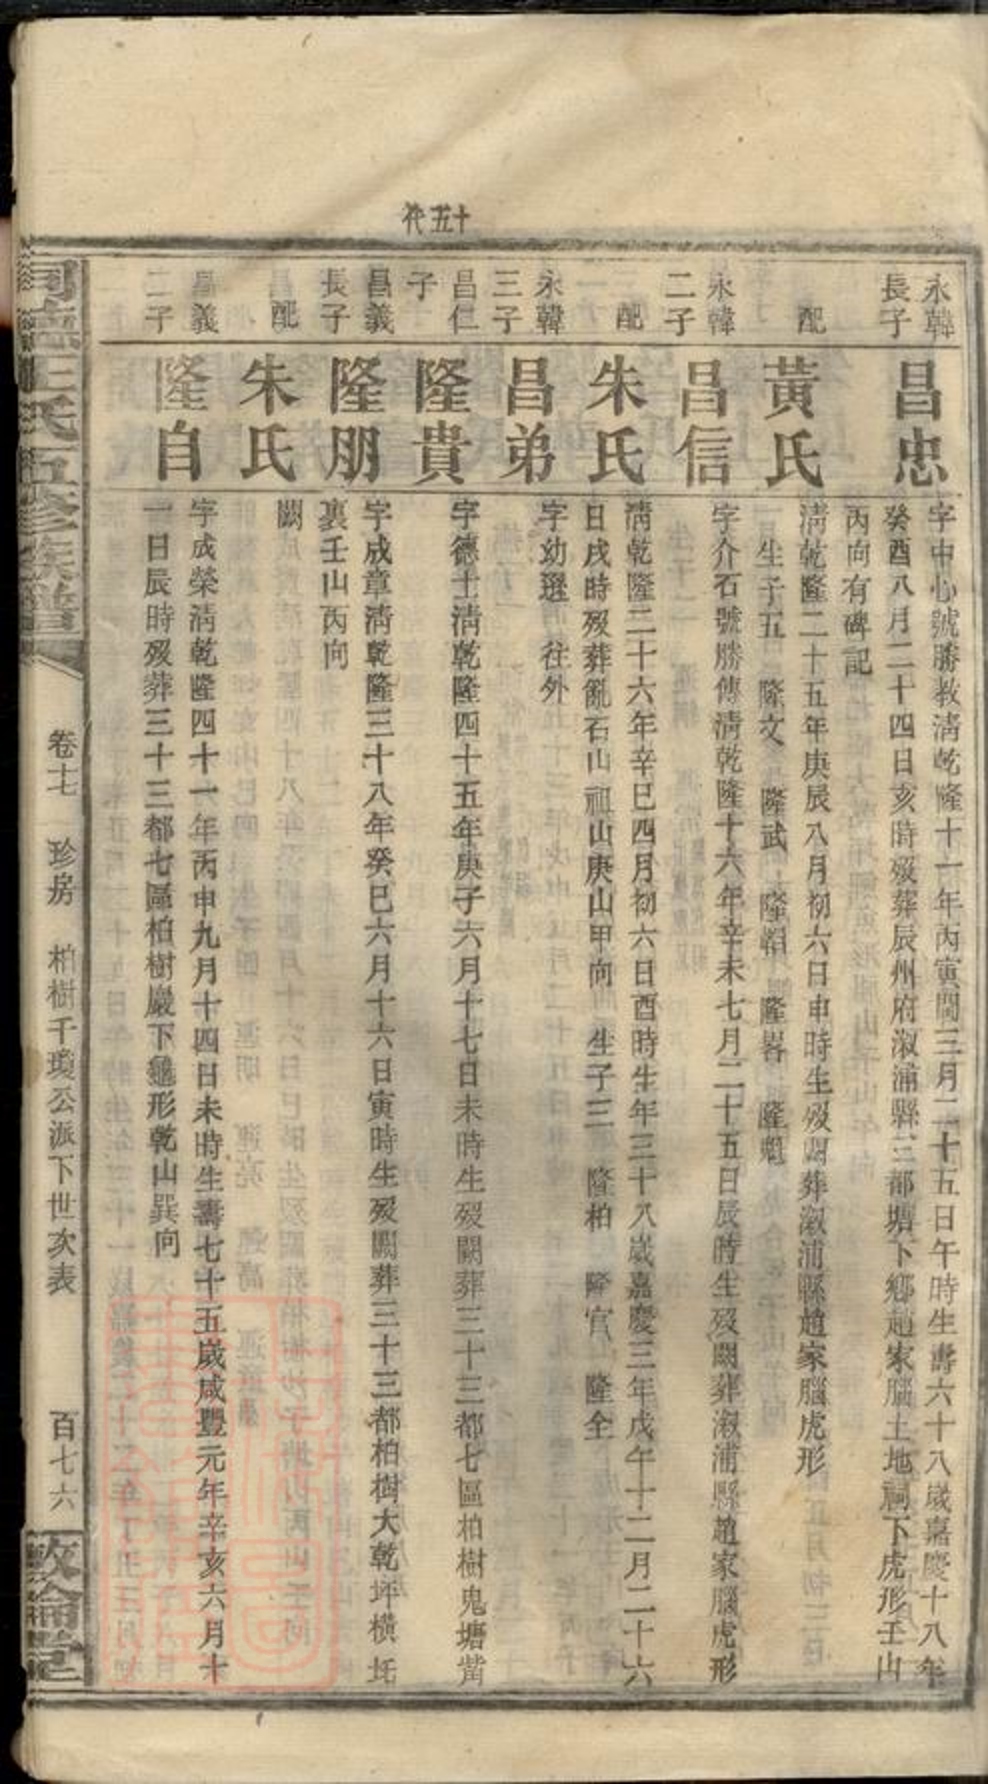 十五代
永韓長子
昌忠
字中心號勝教淸乾隆十一年丙寅閏三月二十五日午時生壽六十八歲嘉慶十八年
癸酉八月二十四日亥時歿葬辰州府漵浦縣三都塘下鄉趙家腦土地祠下虎形壬山
丙向有碑記
配
黃氏
淸乾隆二十五年庚辰八月初六日申時生歿闕葬漵浦縣趙家腦虎形
生子五 隆文 隆武 隆韜 隆畧 隆魁
永韓二子
昌信
字介石號勝傅淸乾隆十六年辛未七月二十五日辰時生歿闕葬漵浦縣趙家腦虎形
配
朱氏
淸乾隆二十六年辛巳四月初六日酉時生年三十八歲嘉慶三年戊午十二月二十六
日戌時歿葬亂石山祖山庚山甲向 生子三 隆柏 隆官 隆全
永韓三子
昌弟
字幼選 往外
昌仁子
隆貴
字德士淸乾隆四十五年庚子六月十七日未時生歿闕葬三十三都七區柏樹鬼塘嘴
昌義長子
隆朋
字成章淸乾隆三十八年癸巳六月十六日寅時生歿闕葬三十三都柏樹大乾坪橫圫
裏壬山丙向
配
朱氏
闕
昌義二子
隆自
字成榮淸乾隆四十一年丙申九月十四日未時生壽七十五歲咸豐元年辛亥六月十
一日辰時歿葬三十三都七區柏樹巖下龜形乾山巽向
王氏五修族譜
卷十七 珍房 柏樹千瓊公派下世次表
百七六
敦倫堂